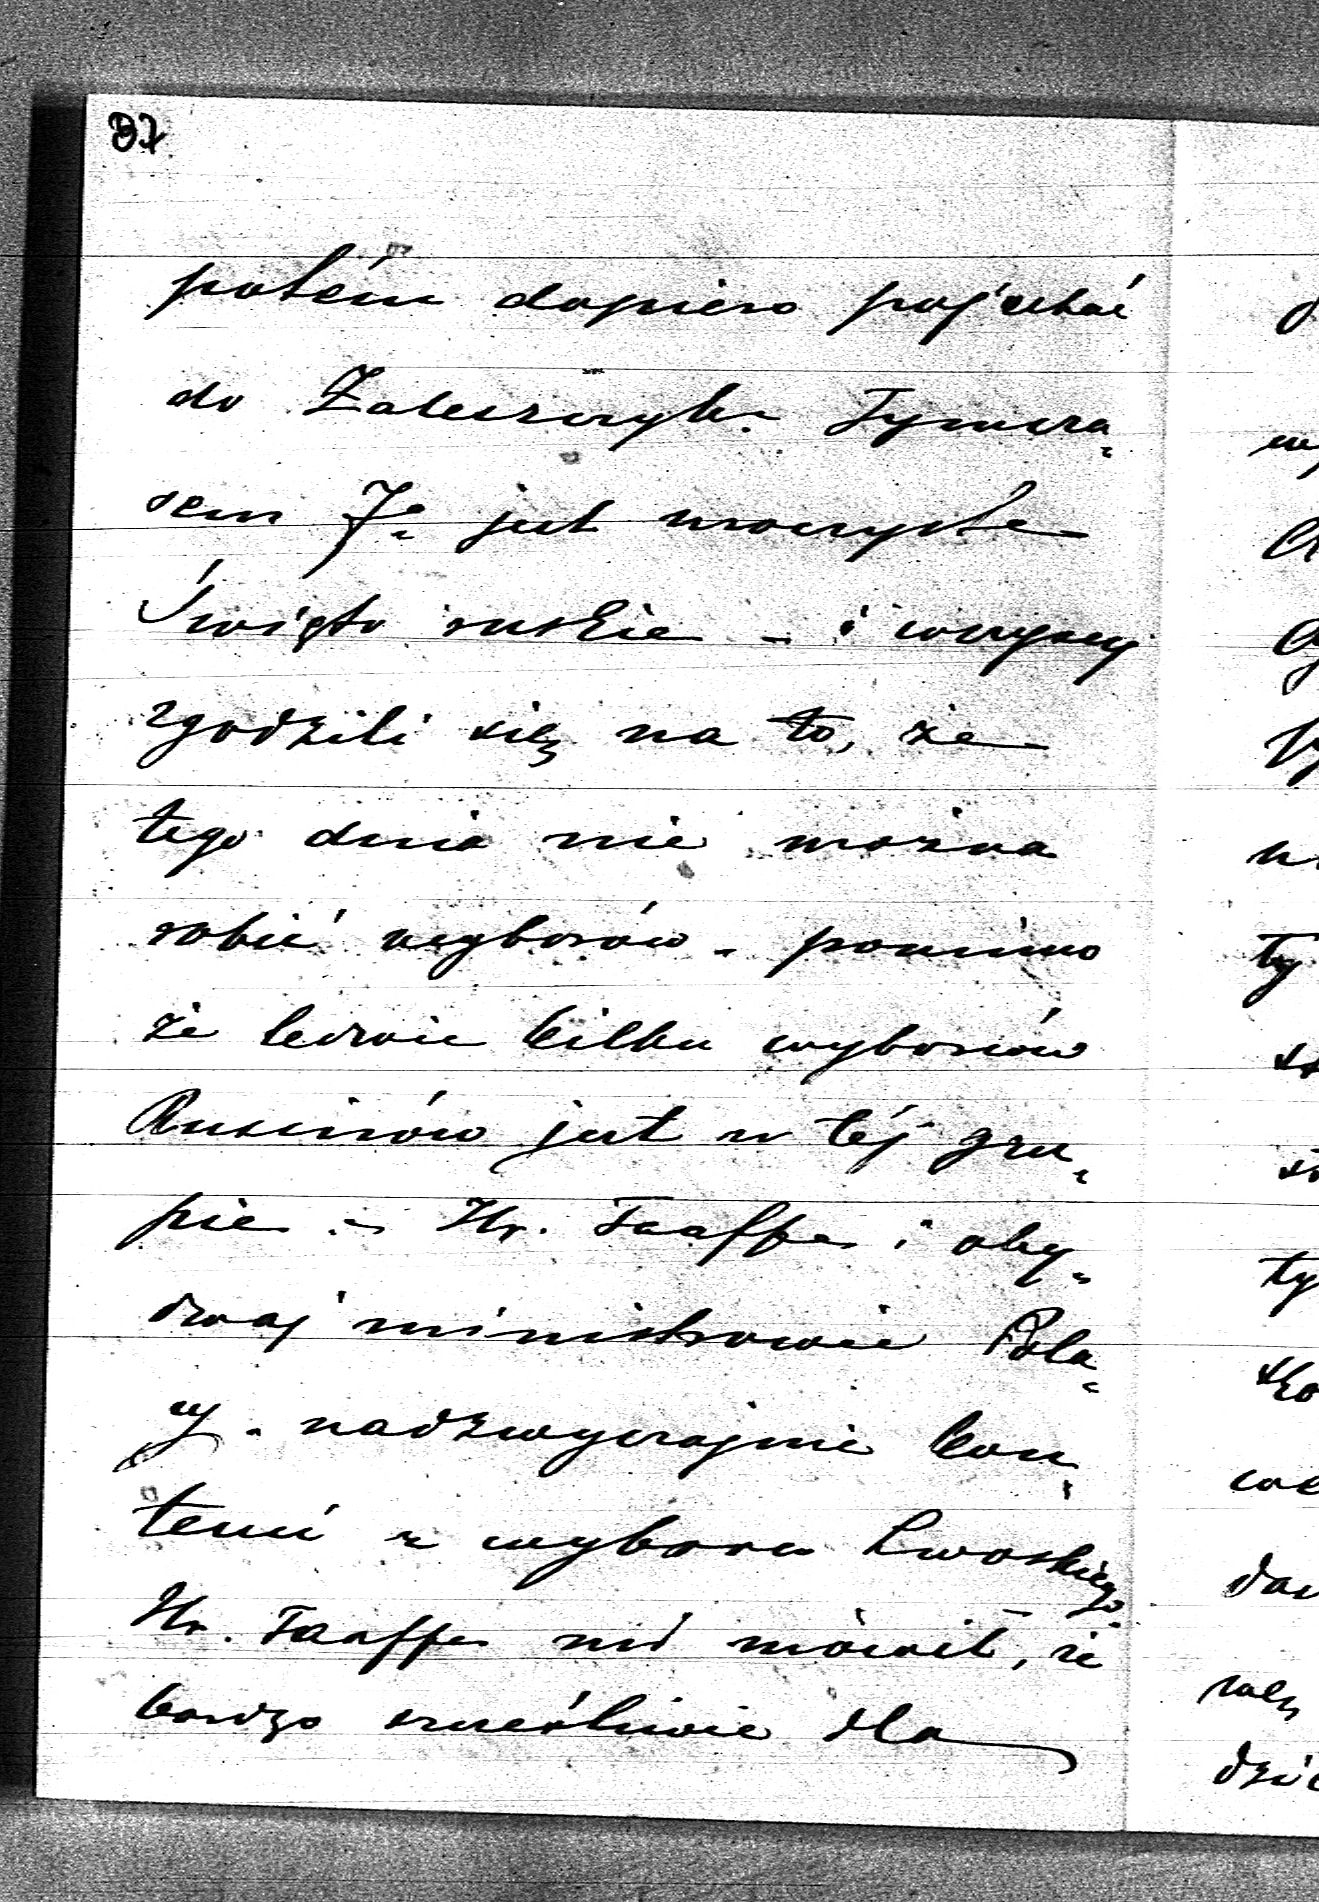 87
potém dopiero pojechać
do Zaleszczyk. Tymcza=
sem 7º jest uroczyste
Święto ruskie – i wszyscy
zgodzili się na to, że
tego dnia nie można
robić wyborów – pomimo
że ledwie kilku wyborców
Rusinów jest w téj gru=
pie. – Hr. Taaffe i oby=
dwaj ministrowie Pola=
cy – nadzwyczajnie kon=
tenci z wyboru Lwoskiego
Hr. Taaffe mi mówił, że
bardzo szczęśliwie dla